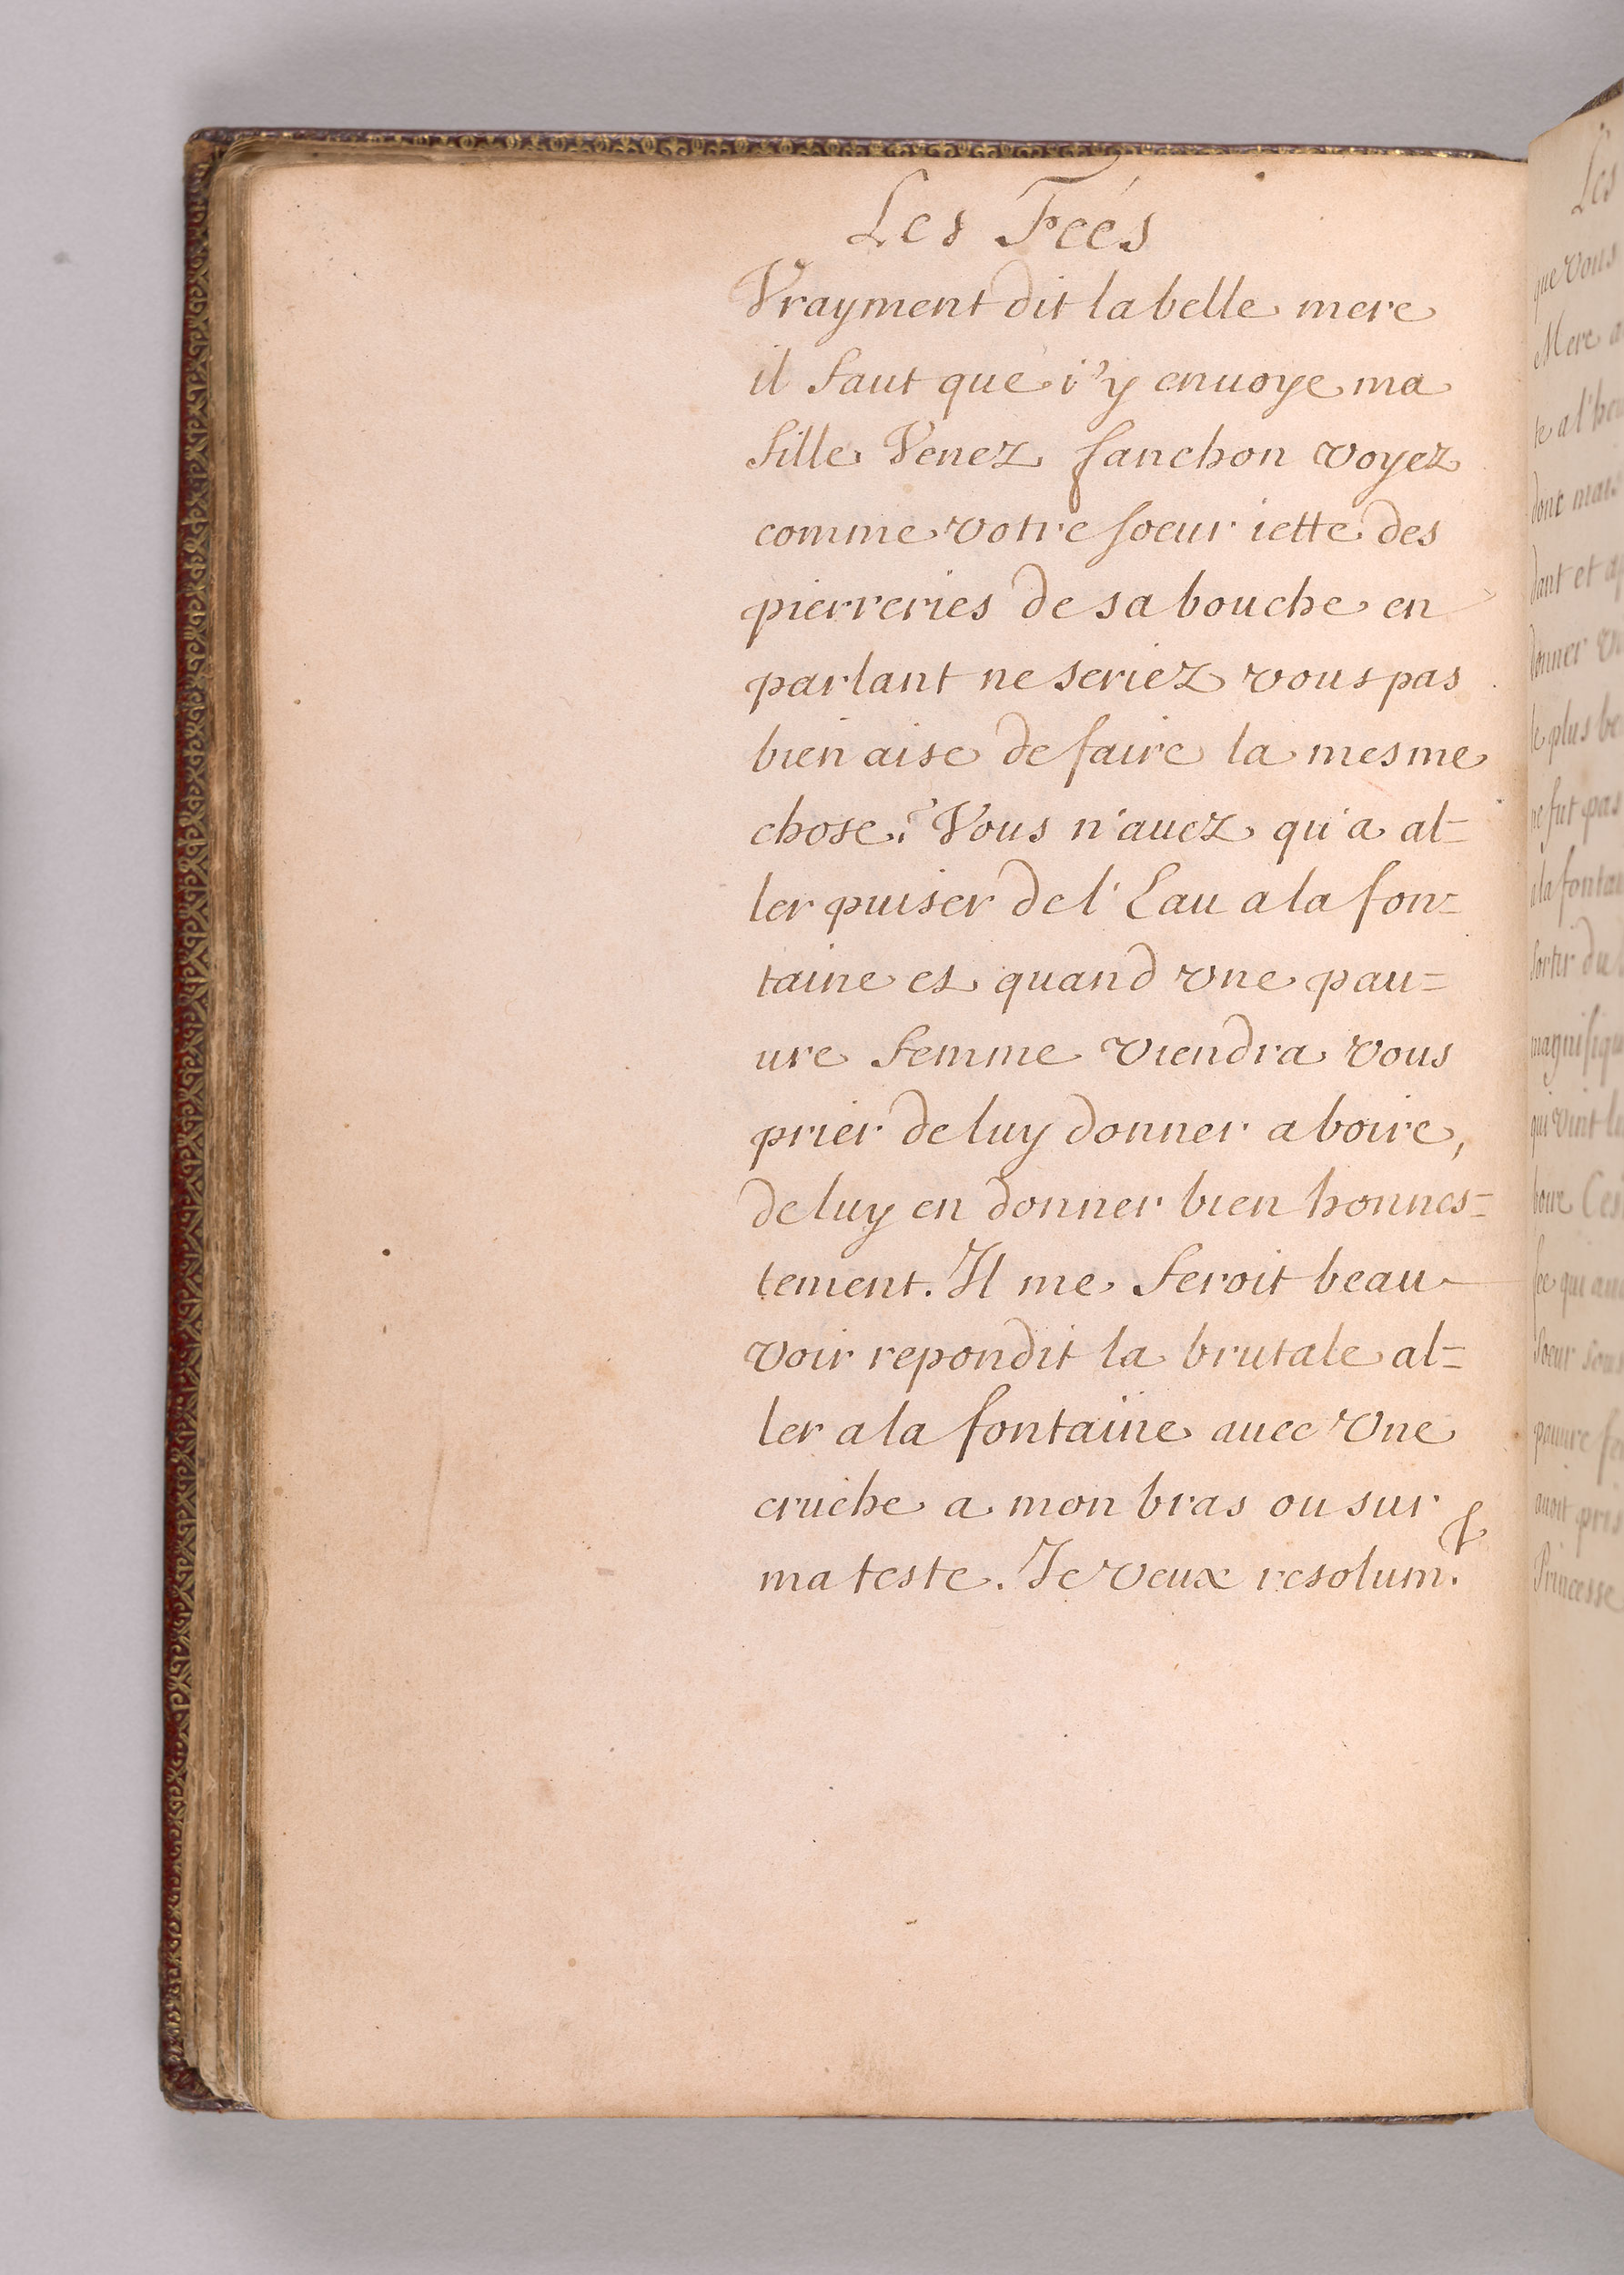 Les Feés
Vrayment dit la belle mere
il faut que i'y enuoye ma
fille Venez fanchon voyez
comme votre soeur iette des
pierreries de sa bouche en
parlant ne seriez vous pas
bien aise de faire la mesme
chose? Vous n'auez qu'a al=
ler puiser de l'Eau a la fon=
taine et quand vne pau=
ure femme viendra vous
prier de luy donner a boire,
de luy en donner bien honnes=
tement. Il me feroit beau
voir repondit la brutale al=
ler a la fontaine auec vne
cruche a mon bras ou sur
ma teste. Je veux resolum.t
Les
que vous
Mere
te a l'
donc mais
dant et
donner
le plus
ne fut pas
a la
sortir du
qui vint
boire
fee qui
soeur sous
pauure
auoit pris
Princesse